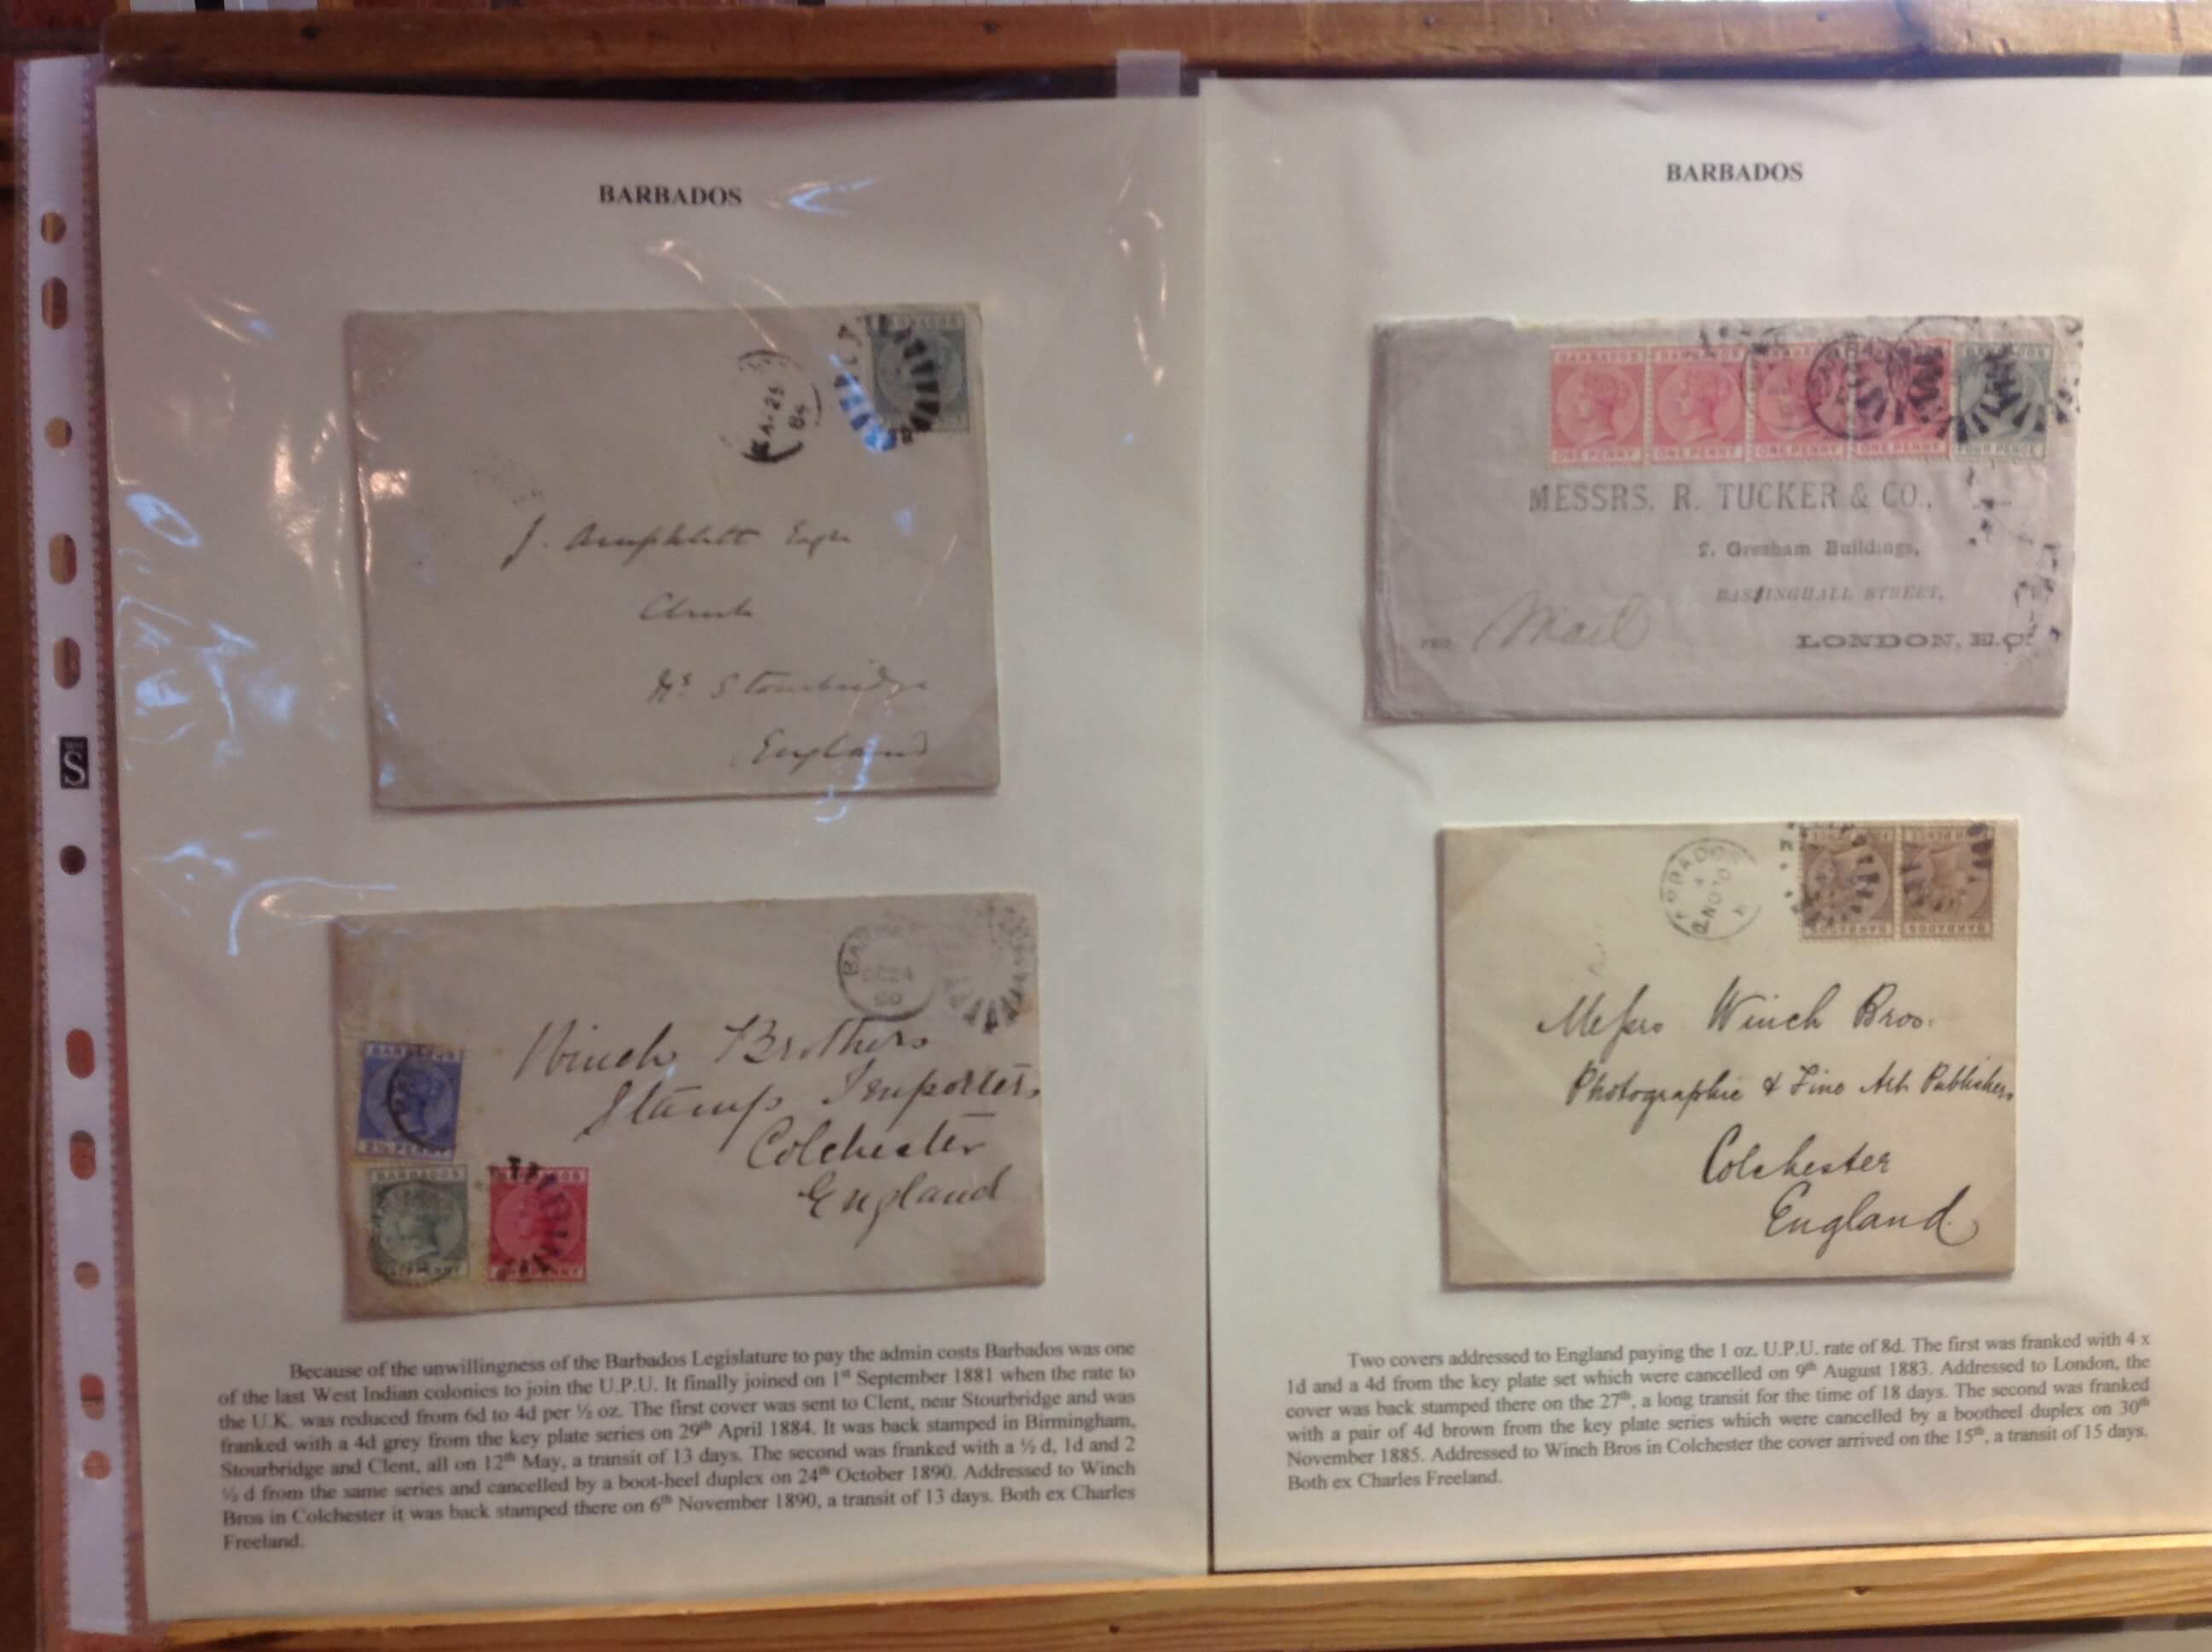 BARBADOS
AP 29
84
J. Amphlett Esqre
Clent
Nr Stourbridge
England
BAR
OC 24
90
Winch Brothers
Stamp Importers
Colchester
England
BARBADOS
2½ PENNY
BARBADOS
HALFPENNY
ONE PENNY
Because of the unwillingness of the Barbados Legislature to pay the admin costs Barbados was one
of the last West Indian colonies to join the U.P.U. It finally joined on 1st September 1881 when the rate to
the U.K. was reduced from 6d to 4d per ½ oz. The first cover was sent to Clent, near Stourbridge and was
franked with a 4d grey from the key plate series on 29th April 1884. It was back stamped in Birmingham,
Stourbridge and Clent, all on 12th May, a transit of 13 days. The second was franked with a ½ d, 1d and 2
½ d from the same series and cancelled by a boot-heel duplex on 24th October 1890. Addressed to Winch
Bros in Colchester it was back stamped there on 6th November 1890, a transit of 13 days. Both ex Charles
Freeland.
BARBADOS
BARBADOS BARBADOS
ONE PENNY ONE PENNY ONE PENNY ONE PENNY FOUR PENCE
MESSRS. R. TUCKER & CO.,
Gresham Buildings,
BASINGHALL STREET,
PER Mail
LONDON, E.C.
BARBADOS
NO 30
BARBADOS BARBADOS
Messrs Winch Bros.
Photographic & Fine Art Publishers
Colchester
England
Two covers addressed to England paying the 1 oz. U.P.U. rate of 8d. The first was franked with 4 x
1d and a 4d from the key plate set which were cancelled on 9th August 1883. Addressed to London, the
cover was back stamped there on the 27th, a long transit for the time of 18 days. The second was franked
with a pair of 4d brown from the key plate series which were cancelled by a bootheel duplex on 30th
November 1885. Addressed to Winch Bros in Colchester the cover arrived on the 15th, a transit of 15 days.
Both ex Charles Freeland.